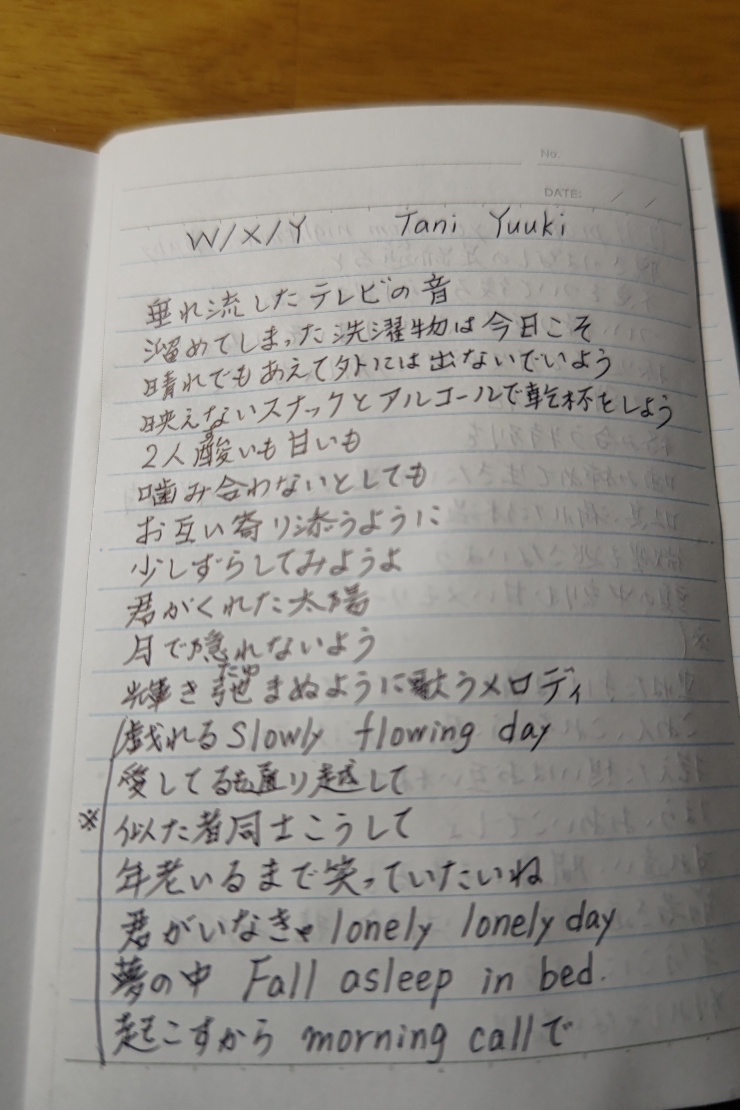 No.
DATE: / /
W/X/Y Tani Yuuki
垂れ流したテレビの音
溜めてしまった洗濯物は今日こそ
晴れでもあえて外には出ないでいよう
映えないスナックとアルコールで乾杯をしよう
2人酸いも甘いも
噛み合わないとしても
お互い寄り添うように
少しずらしてみようよ
君がくれた太陽
月で隠れないよう
輝き弛まぬように歌うメロディ
戯れるSlowly flowing day
愛してるも通り越して
※ 似た者同士こうして
年老いるまで笑っていたいね
君がいなきゃ lonely lonely day
夢の中 Fall asleep in bed.
起こすから morning callで